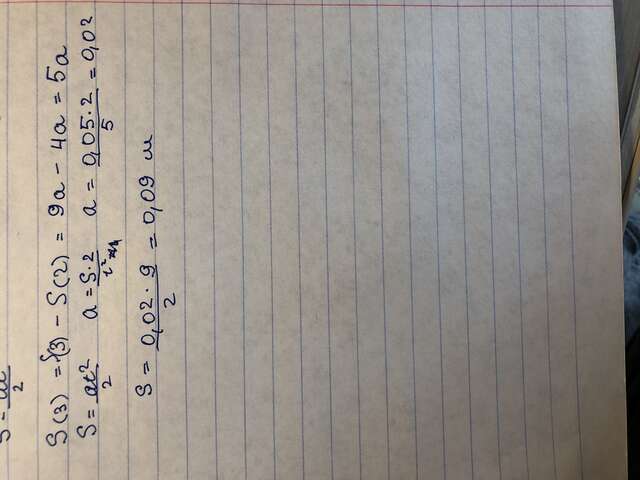 S = at²/2
S(3) = S(3) - S(2) = 9a - 4a = 5a
S = at²/2 a = S·2/t² a = 0,05·2/5 = 0,02
S = 0,02·9/2 = 0,09 м